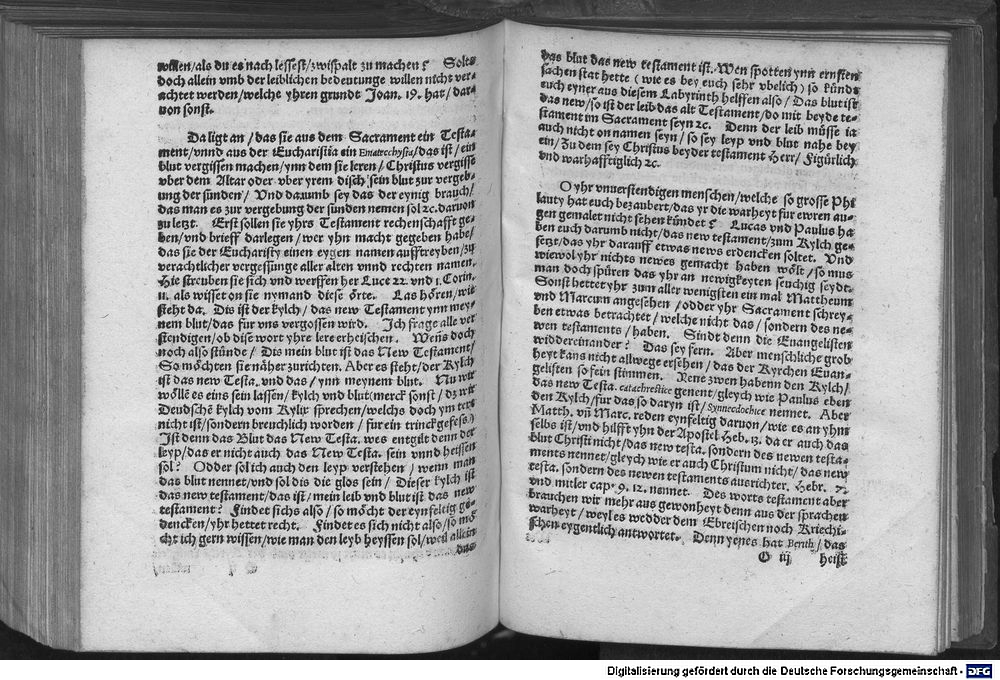 willen/als du es nach lessest/zwispalt zu machen? Solts
doch allein vmb der leiblichen bedeutunge willen nicht ver-
achtet werden/welche yhren grundt Joan. 19. hat/dar-
uon sonst.
Da ligt an/das sie aus dem Sacrament ein Testa-
ment/vnnd aus der Eucharistia ein Ematechysia/das ist/ein
blut vergissen machen/ynn dem sie leren/Christus vergisse
vber dem Altar oder vber yrem disch sein blut zur vergeb-
ung der sunden/Vnd darumb sey das der eynig brauch/
das man es zur vergebung der sunden nemen sol ꝛc. daruon
zu letzt. Erst sollen sie yhrs Testament rechenschafft ge-
ben/vnd brieff darlegen/wer yhn macht gegeben habe/
das sie der Eucharisty einen eygen namen aufftreyben/zu
verachtlicher vergessunge aller alten vnnd rechten namen.
Hie streuben sie sich vnd werffen her Luce 22. vnd 1. Corin.
11. als wisset on sie nymand diese örte. Las hören/wie
steht da. Dis ist der kylch/das new Testament ynn mey-
nem blut/das für vns vergossen wird. Ich frage alle ver
stendigen/ob dise wort yhre lere erheischen. Wens doch
noch also stünde/Dis mein blut ist das New Testament/
So möchten sie näher zurichten. Aber es steht/der Kylch
ist das new Testa. vnd das/ynn meynem blut. Nu wir
wölle͂ es eins sein lassen/kylch vnd blut (merck sonst/dz wir
Deudsche͂ kylch vom Kylix sprechen/welchs doch yn text
nicht ist/sondern breuchlich worden/für ein trinckgefess.)
Ist denn das Blut das New Testa. wes entgilt denn der
leyp/das er nicht auch das New Testa. sein vnnd heissen
sol? Odder sol ich auch den leyp verstehen/wenn man
das blut nennet/vnd sol dis die glos sein/Dieser kylch ist
das new testament/das ist/mein leib vnd blut ist das new
testament? Findet sichs also/so möcht der eynfeltig ge-
dencken/yhr hettet recht. Findet es sich nicht also/so mö
cht ich gern wissen/wie man den leyb heyssen sol/weil allein
das
das blut das new testament ist. Wen spotten ynn ernsten
sachen stat hette (wie es bey euch sehr vbelich) so künds
euch eyner aus diesem Labyrinth helffen also/Das blut ist
das new/so ist der leib das alt Testament/do mit beyde te-
stament im Sacrament seyn ꝛc. Denn der leib müsse ia
auch nicht on namen seyn/so sey leyp vnd blut nahe bey
ein/Zu dem sey Christus beyder testament Herr/Figürlich
vnd warhafftiglich ꝛc.
O yhr vnuerstendigen menschen/welche so grosse Phi
lauty hat euch bezaubert/das yr die warheyt fur ewren au-
gen gemalet nicht sehen kündet? Lucas vnd Paulus ha
ben euch darumb nicht/das new testament/zum Kylch ge-
setzt/das yhr darauff etwas news erdencken soltet. Vnd
wiewol yhr nichts newes gemacht haben wölt/so mus
man doch spüren das yhr an newigkeyten seuchig seydt.
Sonst hettet yhr zum aller wenigsten ein mal Mattheum
vnd Marcum angesehen/odder yhr Sacrament schrey-
ben etwas betrachtet/welche nicht das/sondern des ne-
wen testaments/haben. Sindt denn die Euangelisten
widdereinander? Das sey fern. Aber menschliche grob
heyt kans nicht allwege ersehen/das der Kyrchen Euan-
gelisten so fein stimmen. Jene zwen habenn den Kylch/
das new Testa. catachrestice genent/gleych wie Paulus eben
den Kylch/für das so daryn ist/Synnecdochice nennet. Aber
Matth. vn͂ Marc. reden eynfeltig daruon/wie es an yhm
selbs ist/vnd hilfft yhn der Apostel Heb. 13. da er auch das
blut Christi nicht/das new testa. sondern des newen testa-
ments nennet/gleych wie er auch Christum nicht/das new
testa. sondern des newen testaments ausrichter. Hebr. 7.
vnd mitler cap. 9. 12. nennet. Des worts testament aber
brauchen wir mehr aus gewonheyt denn aus der sprachen
warheyt/weyl es wedder dem Ebreischen noch Kriechi-
schen eygentlich antwortet. Denn yenes hat Berith/das
O iij heist
Digitalisierung gefördert durch die Deutsche Forschungsgemeinschaft - DFG